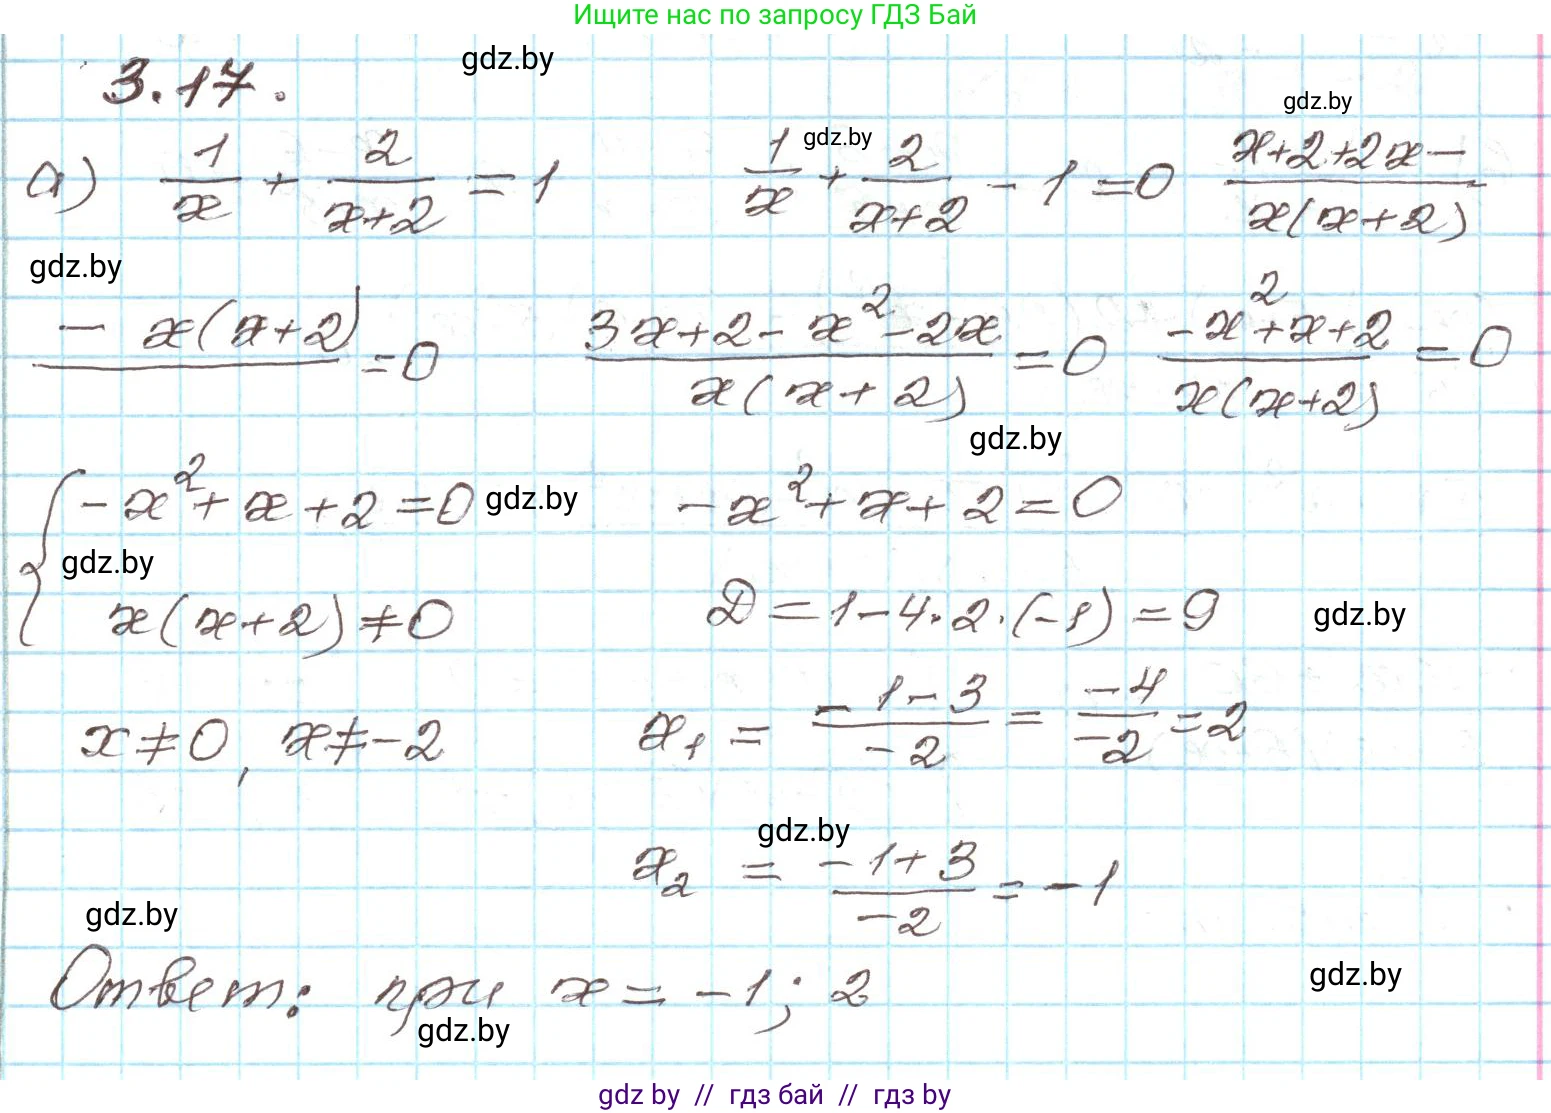 Ищите нас по запросу ГДЗ Бай
3.17.
gdz.by
gdz.by
gdz.by
а) 1/x + 2/(x+2) = 1     1/x + 2/(x+2) - 1 = 0     (x+2+2x-)/(x(x+2))
gdz.by
(- x(x+2))/ = 0     (3x+2-x²-2x)/(x(x+2)) = 0     (-x²+x+2)/(x(x+2)) = 0
gdz.by
{ -x²+x+2=0     gdz.by     -x²+x+2=0
gdz.by
x(x+2)≠0     D=1-4·2·(-1)=9     gdz.by
x≠0, x≠-2     x₁ = (-1-3)/(-2) = (-4)/(-2) = 2
gdz.by
x₂ = (-1+3)/(-2) = -1
gdz.by
Ответ: при x=-1; 2     gdz.by
gdz.by
gdz by // гдз бай // гдз by